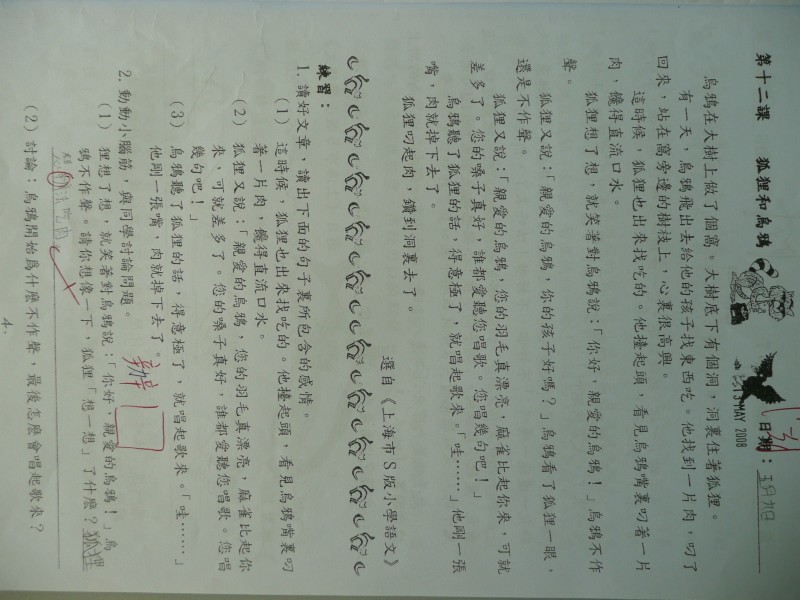 第十二課　狐狸和烏鴉
日期：五月九日
13 MAY 2008
烏鴉在大樹上做了個窩。大樹底下有個洞，洞裏住著狐狸。
有一天，烏鴉飛出去給他的孩子找東西吃。他找到一片肉，叼了
回來，站在窩旁邊的樹枝上，心裏很高興。
這時候，狐狸也出來找吃的。他擡起頭，看見烏鴉嘴裏叼著一片
肉，饞得直流口水。
狐狸想了想，就笑著對烏鴉說：「你好，親愛的烏鴉！」烏鴉不作
聲。
狐狸又說：「親愛的烏鴉，你的孩子好嗎？」烏鴉看了狐狸一眼，
還是不作聲。
狐狸又說：「親愛的烏鴉，您的羽毛真漂亮，麻雀比起你來，可就
差多了。您的嗓子真好，誰都愛聽您唱歌。您唱幾句吧！」
烏鴉聽了狐狸的話，得意極了，就唱起歌來。「哇……」他剛一張
嘴，肉就掉下去了。
狐狸叼起肉，鑽到洞裏去了。
選自《上海市S版小學語文》
練習：
1. 讀好文章，讀出下面的句子裏所包含的感情。
（1） 這時候，狐狸也出來找吃的。他擡起頭，看見烏鴉嘴裏叼
著一片肉，饞得直流口水。
（2） 狐狸又說：「親愛的烏鴉，您的羽毛真漂亮，麻雀比起你
來，可就差多了。您的嗓子真好，誰都愛聽您唱歌。您唱
幾句吧！」
（3） 烏鴉聽了狐狸的話，得意極了，就唱起歌來。「哇……」
他剛一張嘴，肉就掉下去了。
2. 動動小腦筋，與同學討論問題。
（1） 狸想了想，就笑著對烏鴉說：「你好，親愛的烏鴉！」烏
鴉不作聲。請你想像一下，狐狸「想一想」了什麼？狐狸
（2） 討論：烏鴉開始爲什麼不作聲，最後怎麼會唱起歌來？
4.